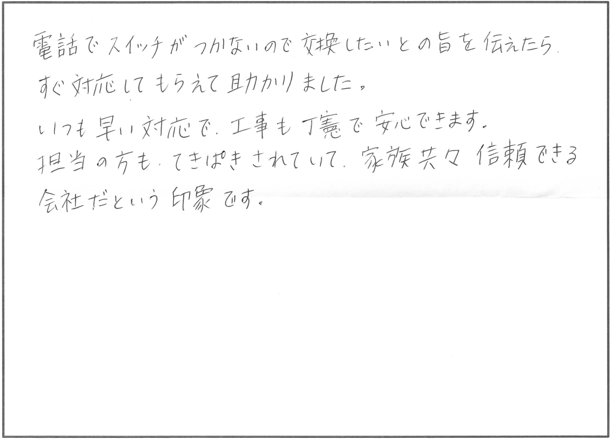 電話でスイッチがつかないので交換したいとの旨を伝えたら、
すぐ対応してもらえて助かりました。
いつも早い対応で、工事も丁寧で安心できます。
担当の方も、てきぱきされていて、家族共々信頼できる
会社だという印象です。